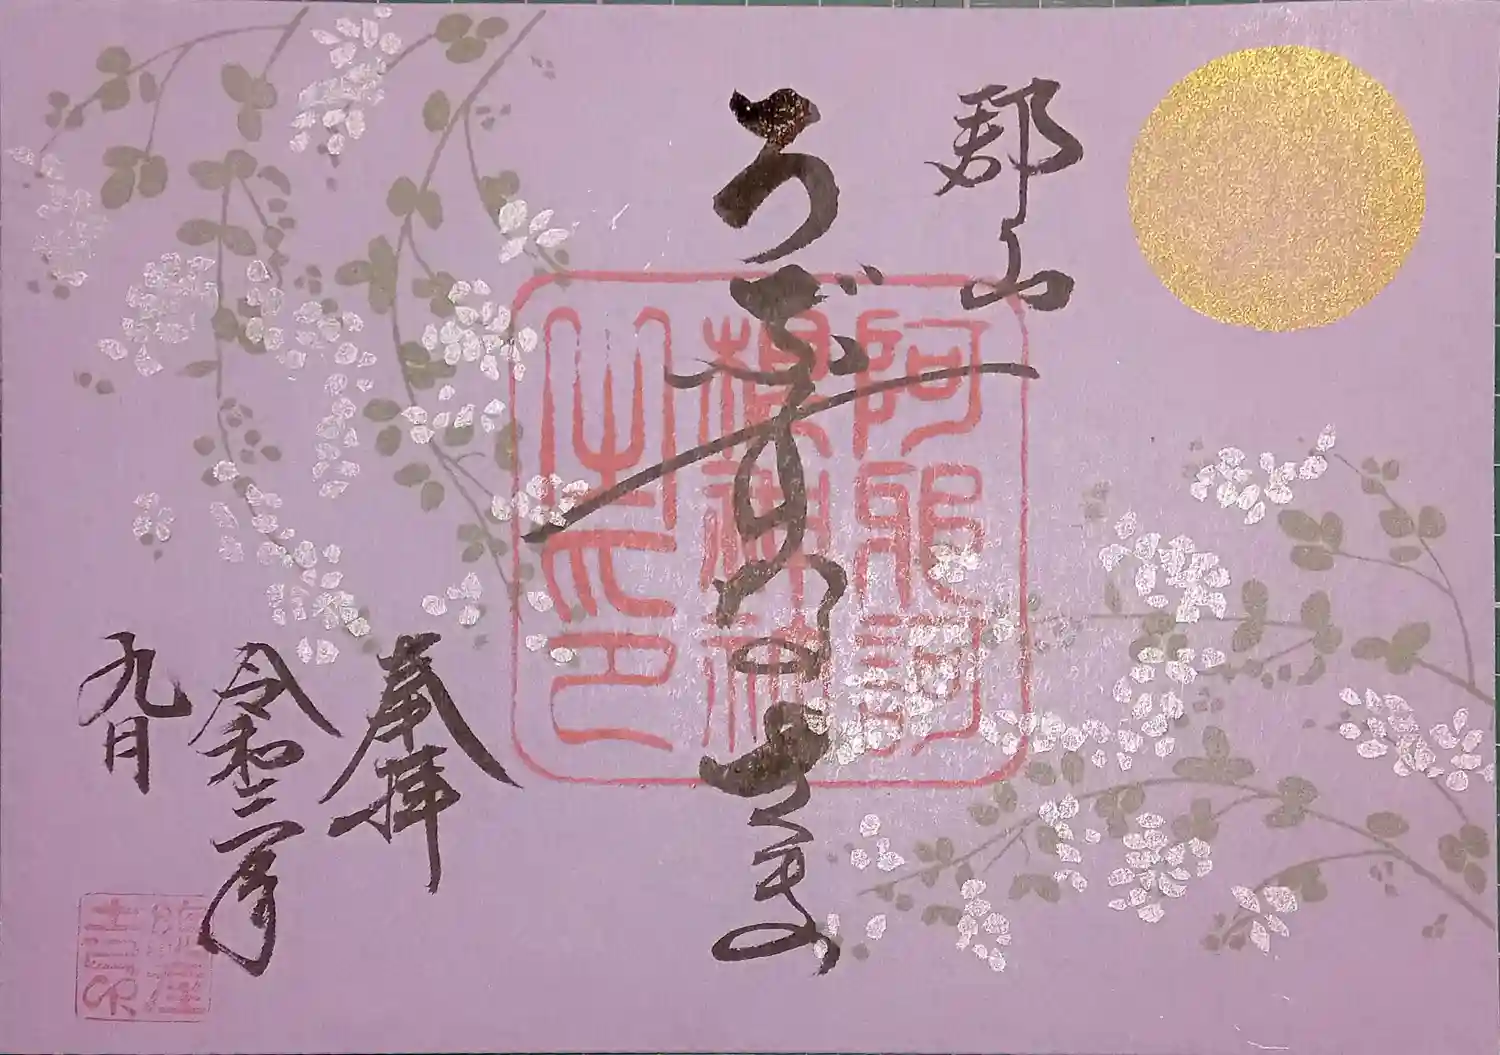 郡山
うずめさま
阿邪訶
根神社
之印
奉拝
令和二年
九月